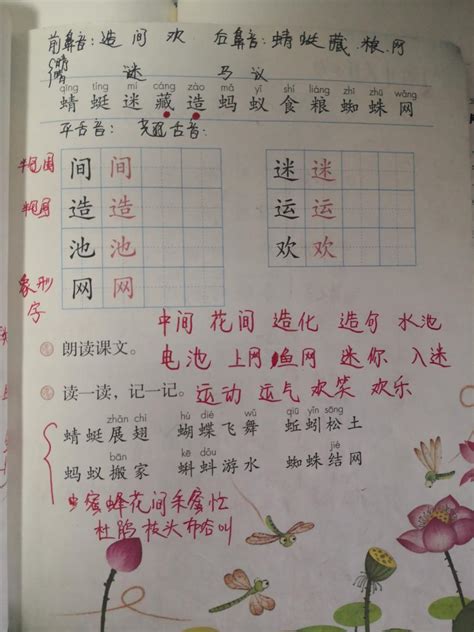 前鼻音：造 间 欢 后鼻音：蜻 蜓 藏 粮 网
谜 马 议
qīng tíng mí cáng zào mǎ yǐ shí liáng zhī zhū wǎng
蜻蜓迷藏造蚂蚁食粮蜘蛛网
平舌音： 翘舌音：
半包围 间 间 迷 迷
半包围 造 造 运 运
池 池 欢 欢
象形字 网 网
中间 花间 造化 造句 水池
朗读课文。 电池 上网 鱼网 迷你 入迷
读一读，记一记。 运动 运气 欢笑 欢乐
zhǎn chì hú dié wǔ qiū yǐn sōng
蜻蜓展翅 蝴蝶飞舞 蚯蚓松土
bān kē dǒu jié
蚂蚁搬家 蝌蚪游水 蜘蛛结网
蜜蜂花间采蜜忙
杜鹃枝头布谷叫